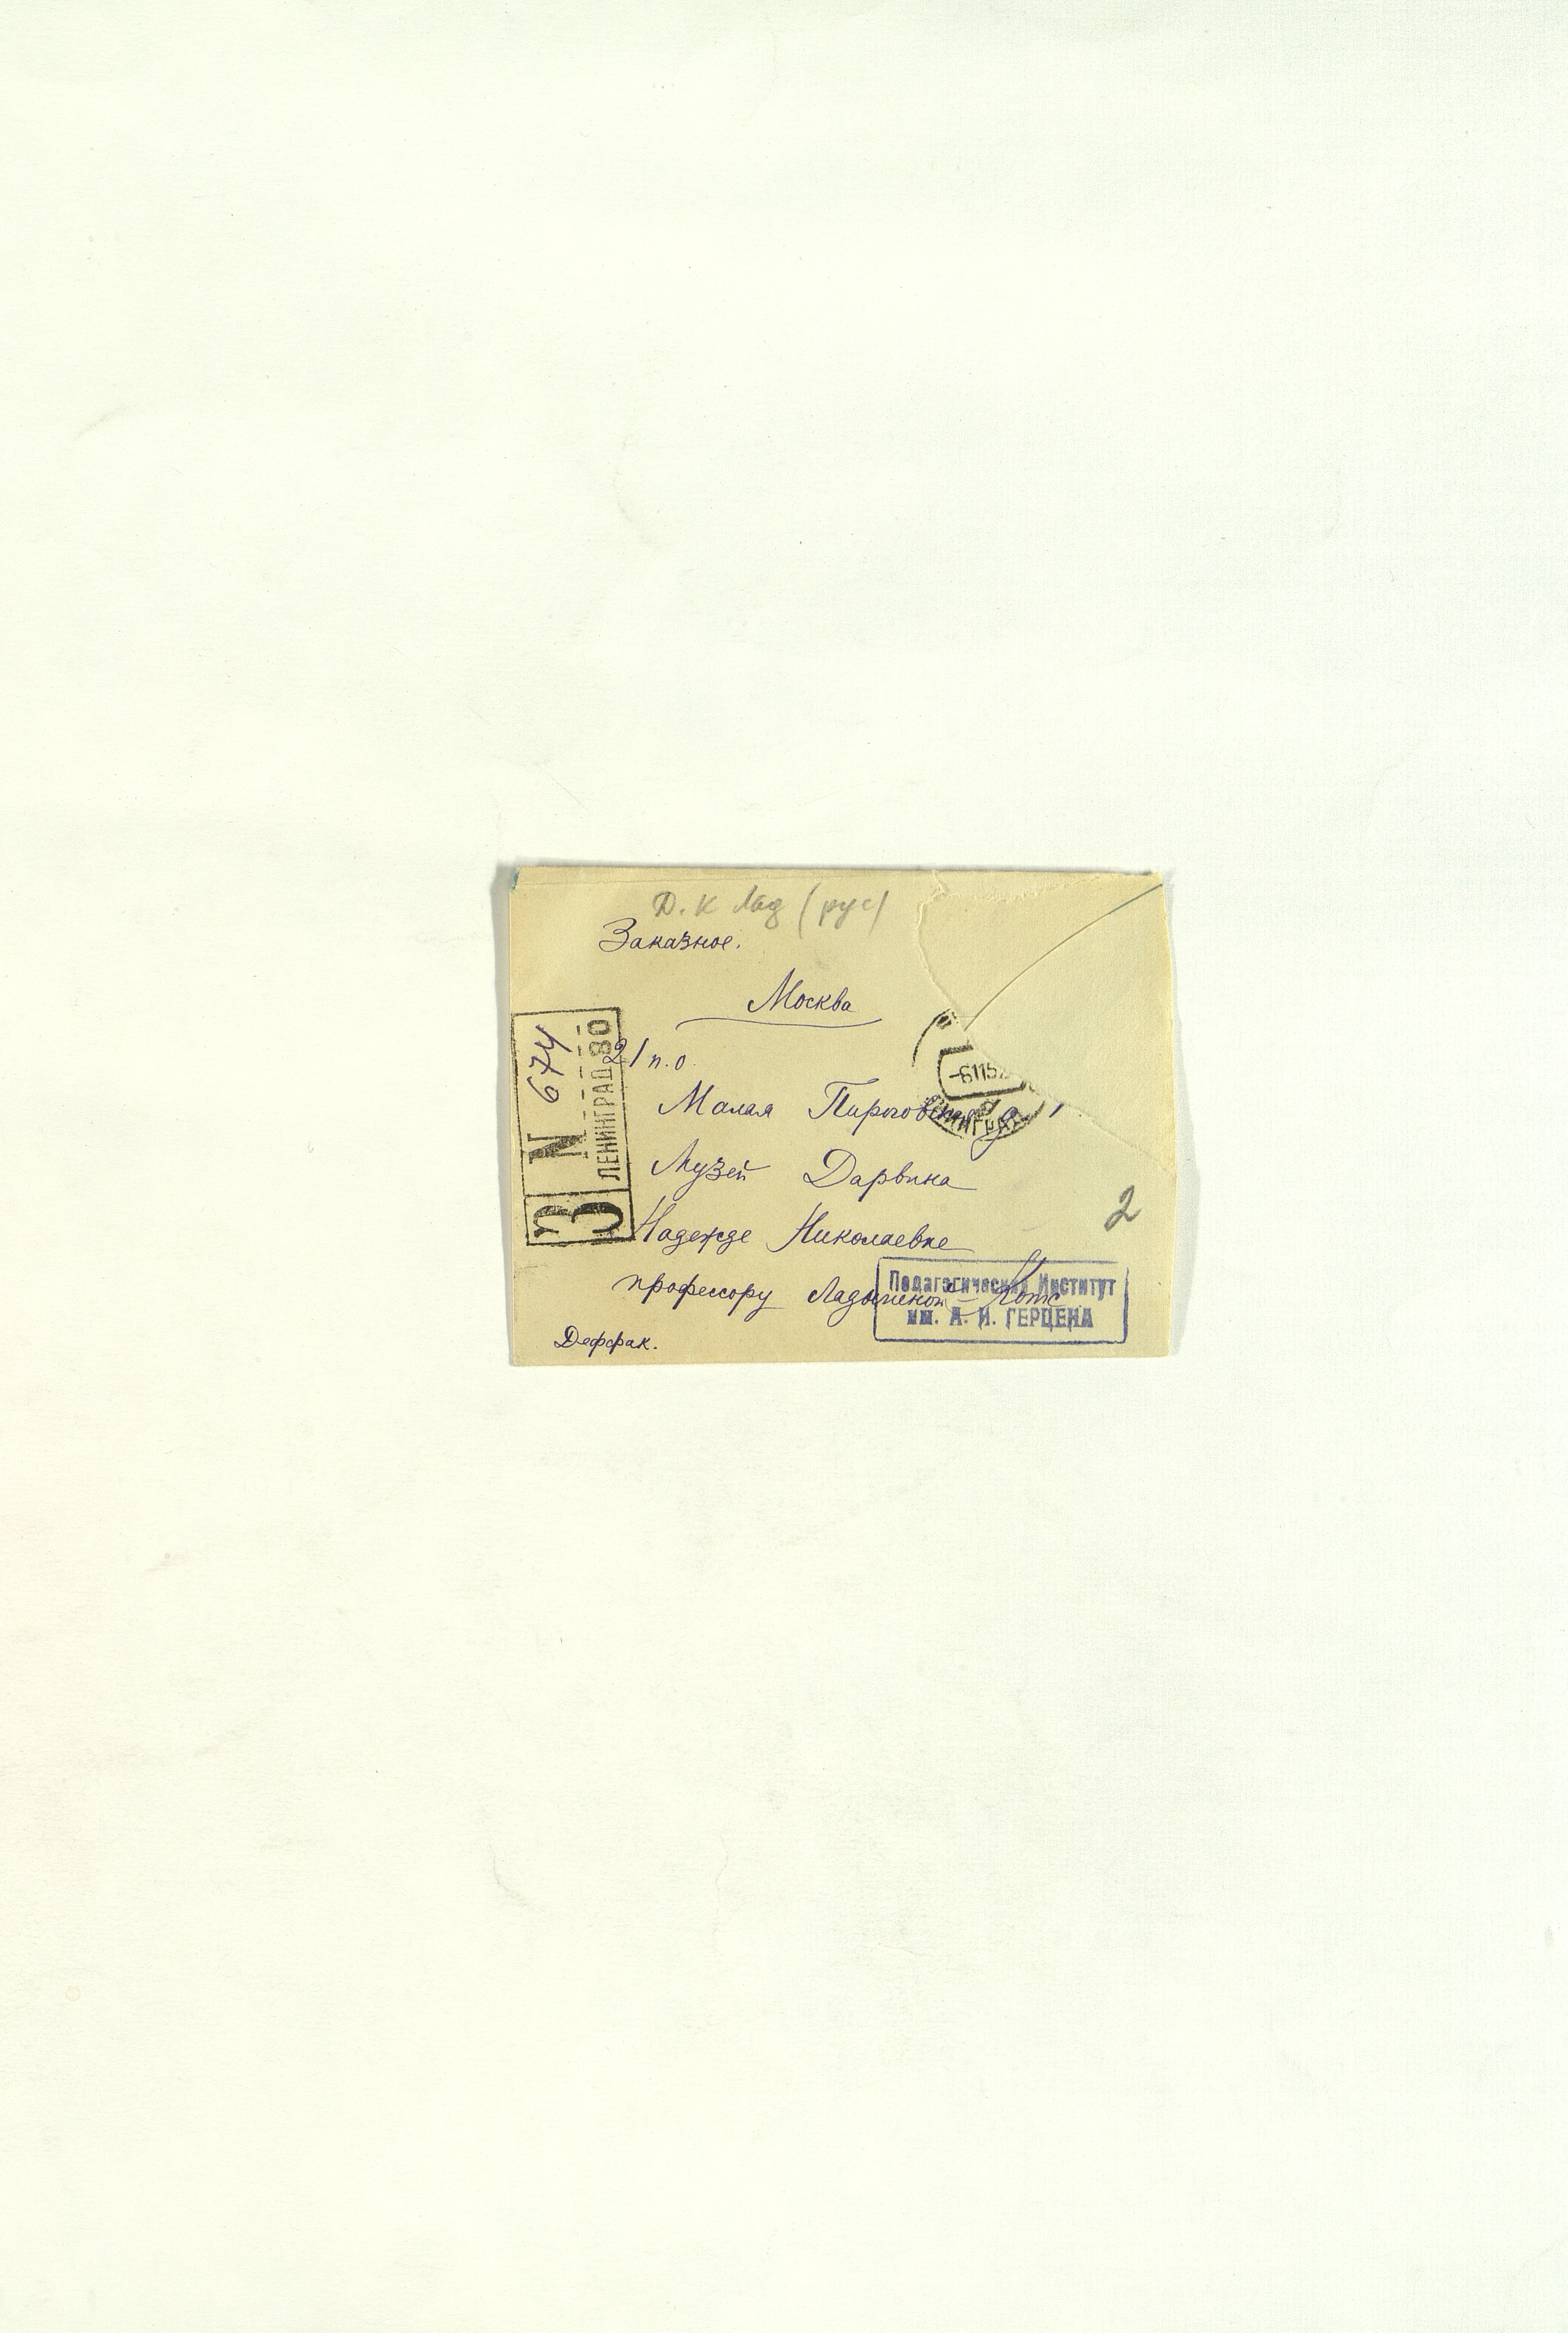 Д. К Лад (рус)
Заказное.
Москва
21 п.о.
Малая Пироговская д. 1
Музей Дарвина
Надежде Николаевне
профессору Ладыгиной-Котс
Деффак.
З N 674
ЛЕНИНГРАД-80
-61152
2
Педагогический Институт
им. А. И. ГЕРЦЕНА